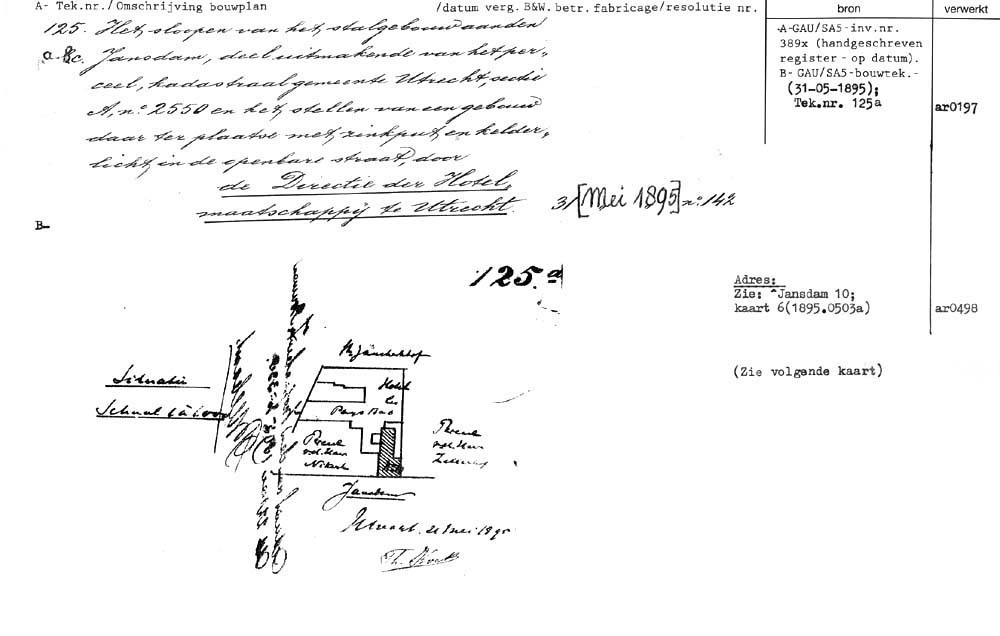 A- Tek.nr./Omschrijving bouwplan /datum verg. B&W. betr. fabricage/resolutie nr. bron verwerkt
125. Het sloopen van het stalgebouw aan den
a. &c. Jansdam, deel uitmakende van het per-
ceel, kadastraal gemeente Utrecht, sectie
A, no. 2550 en het stellen van een gebouw
daar ter plaatse met zinkput en kelder-
licht in de openbare straat, door
de Directie der Hotel-
maatschappij te Utrecht. 31 [Mei 1895] no. 142
B-
A-GAU/SA5-inv.nr.
389x (handgeschreven
register - op datum).
B- GAU/SA5-bouwtek.-
(31-05-1895);
Tek.nr. 125a
ar0197
125.a
Adres:
Zie: ^Jansdam 10;
kaart 6(1895.0503a)
ar0498
(Zie volgende kaart)
Situatie
Schaal
Hotel
Pays Bas
Jansdam
Utrecht. 21 Mei 1895